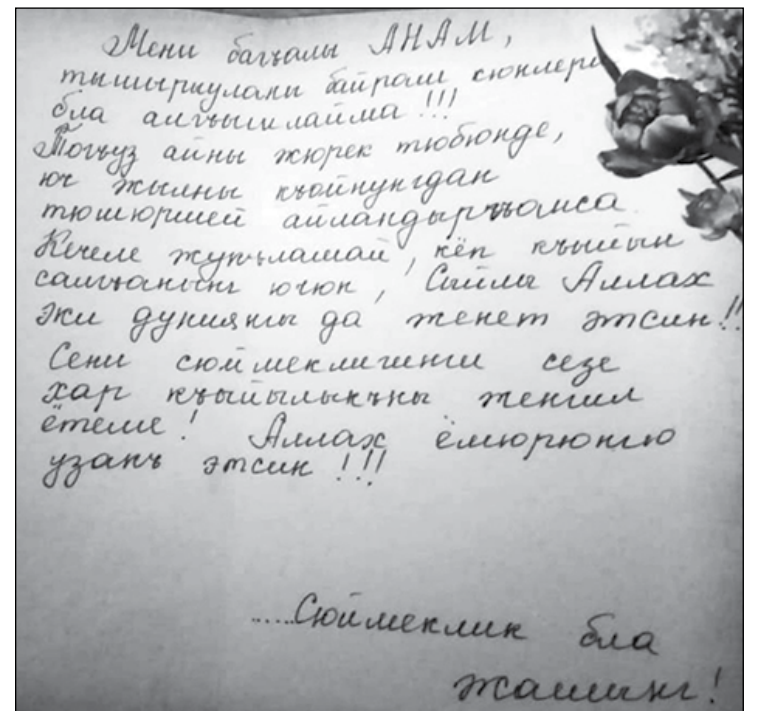 Мени багъалы АНАМ,
тишируулани байрам кюнлери
бла алгъышлайма!!!
Тогъуз айны жюрек тюбюнде,
юч жылны къойнунгдан
тюшюрмей айландыргъанса.
Кечеле жукъламай, кёп къыйын
салгъанынг ючюн, Сыйлы Аллах
эки дунияны да женет этсин!!
Сени сюймеклигинги сезе
хар къыйынлыкъны женгил
ётеме! Аллах ёмюрюнгю
узакъ этсин!!!
......Сюймеклик бла
жашынг!